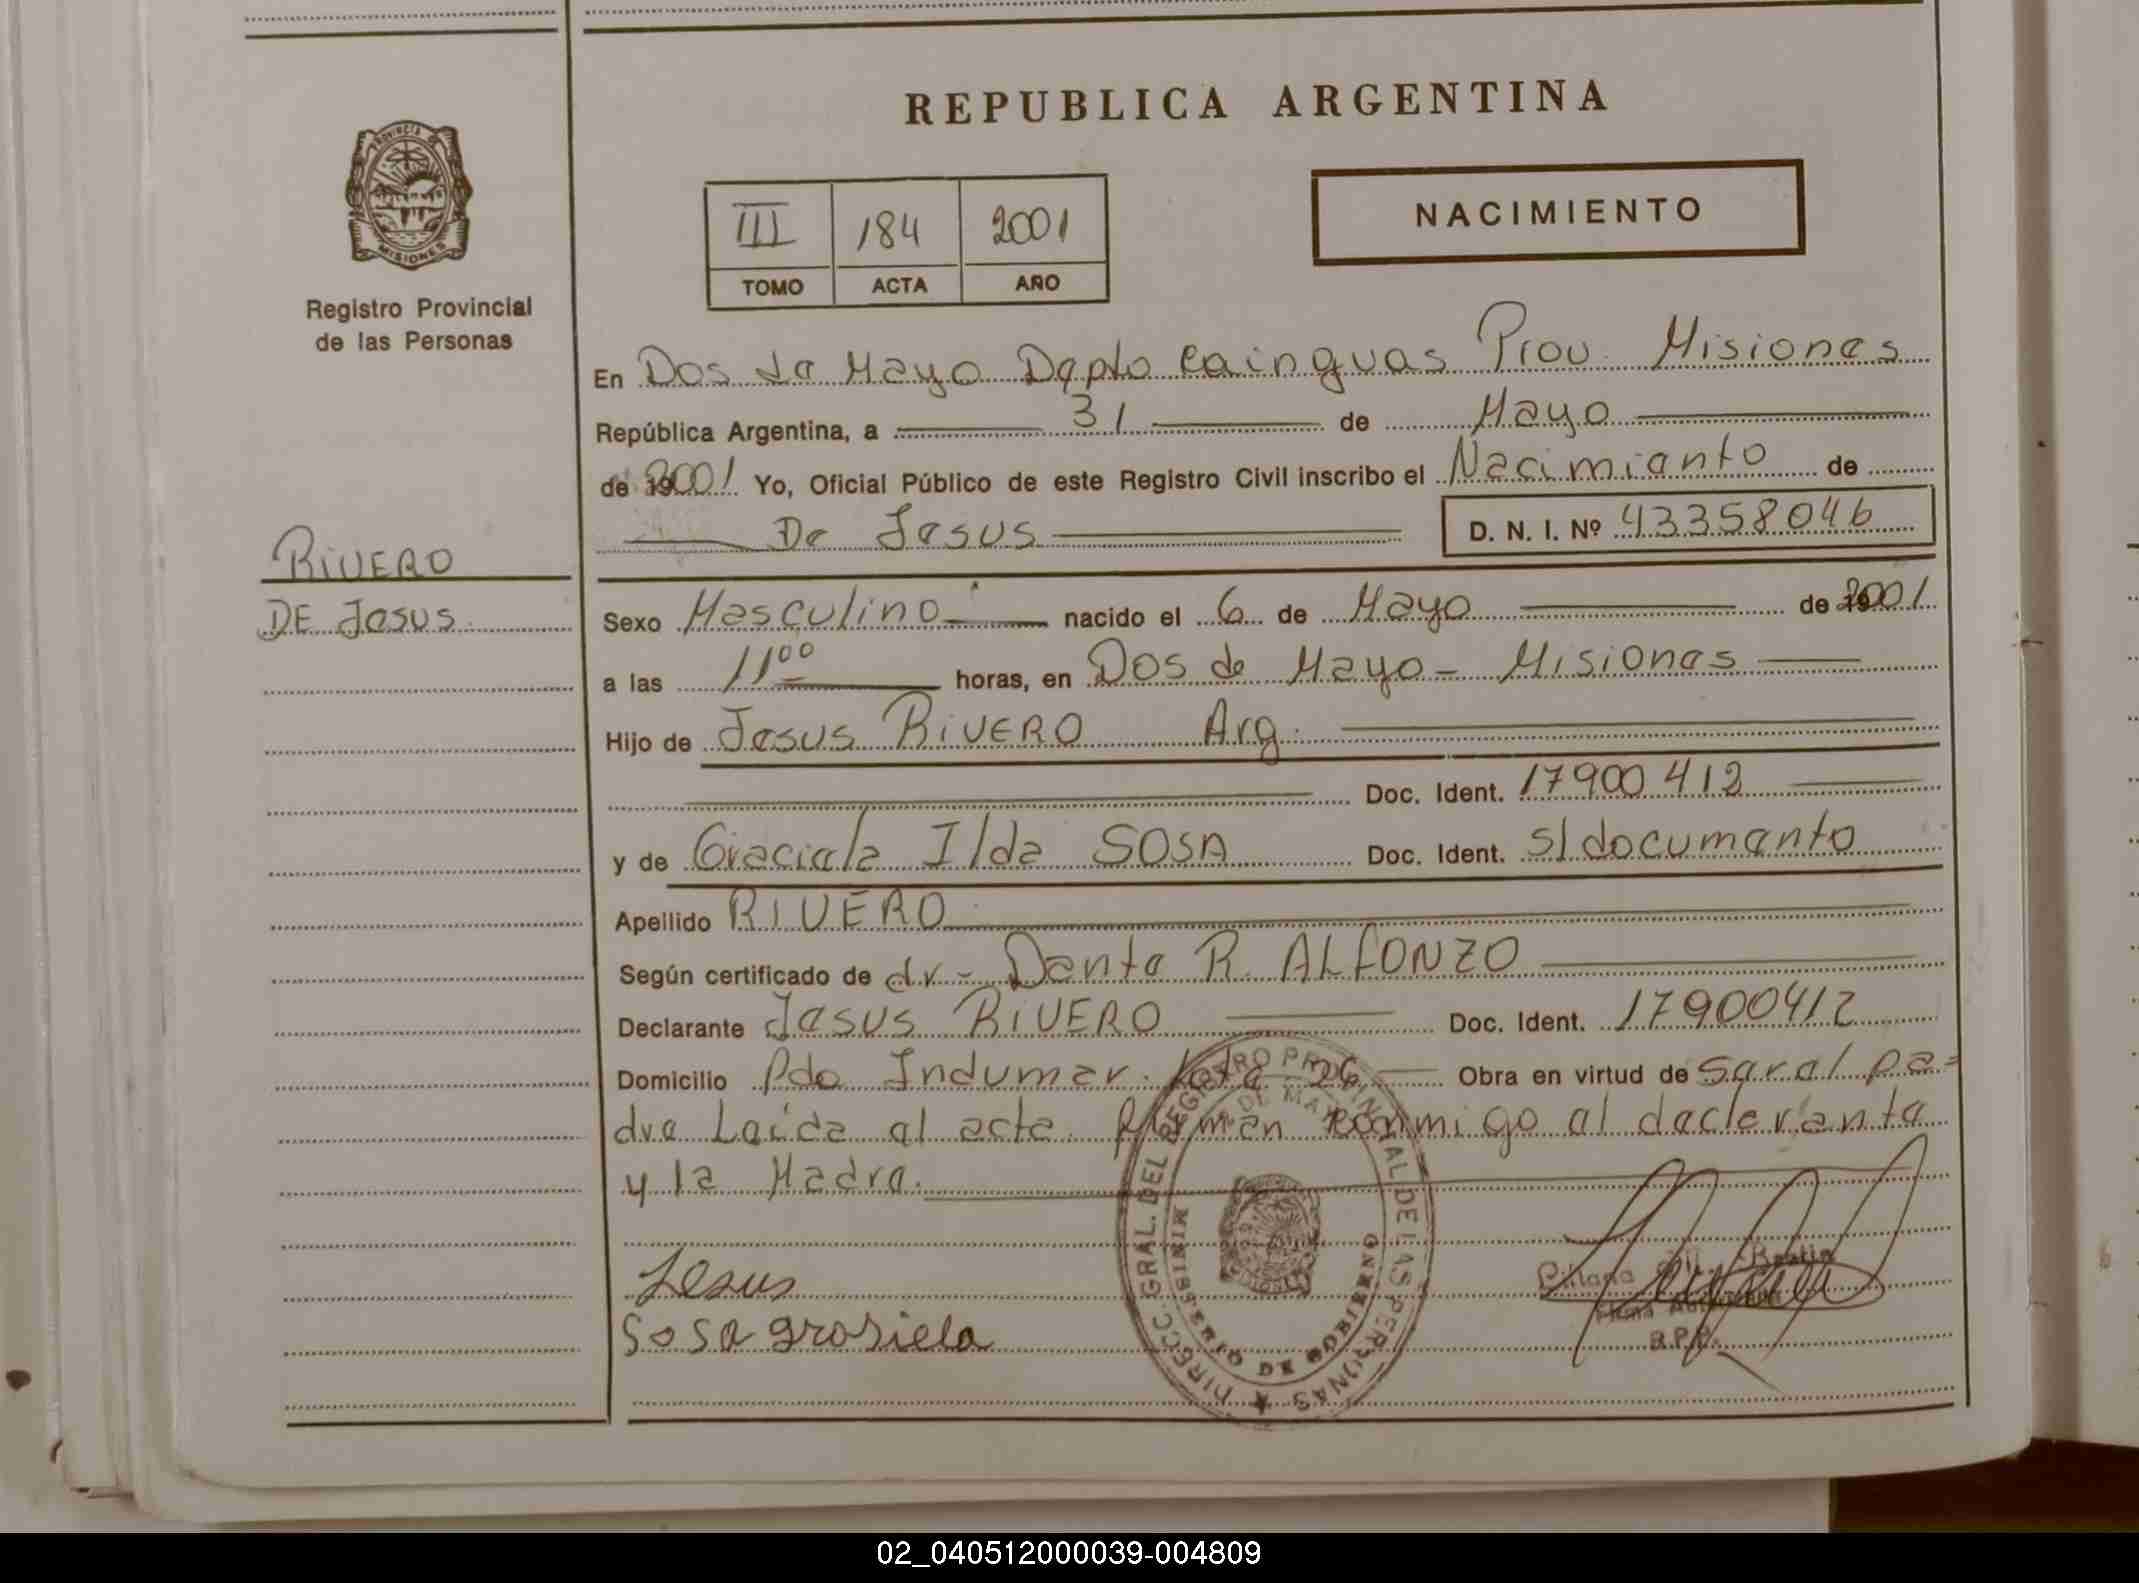 REPUBLICA ARGENTINA
PROVINCIA
MISIONES
Registro Provincial
de las Personas
III 184 2001
TOMO ACTA AÑO
NACIMIENTO
En Dos de Mayo Depto Cainguas Prov. Misiones
República Argentina, a 31 de Mayo
de 2001 Yo, Oficial Público de este Registro Civil inscribo el Nacimiento de
De Jesus D. N. I. Nº 43358046
RIVERO
DE Jesus
Sexo Masculino nacido el 6 de Mayo de 2001
a las 11 00 horas, en Dos de Mayo - Misiones
Hijo de Jesus RIVERO Arg.
Doc. Ident. 17900412
y de Graciela Ilda SOSA Doc. Ident. S/documento
Apellido RIVERO
Según certificado de dr. Dante R. ALFONZO
Declarante Jesus RIVERO Doc. Ident. 17900412
Domicilio Pdo Indumar Lote 26 Obra en virtud de ser el pa=
dre Leida el acta firman conmigo el declarante
y la Madre.
DIRECC. GRAL. DEL REGISTRO PROVINCIAL DE LAS PERSONAS
MINISTERIO DE GOBIERNO
Jesus
Sosa grosiela
R.P.P.
02_040512000039-004809